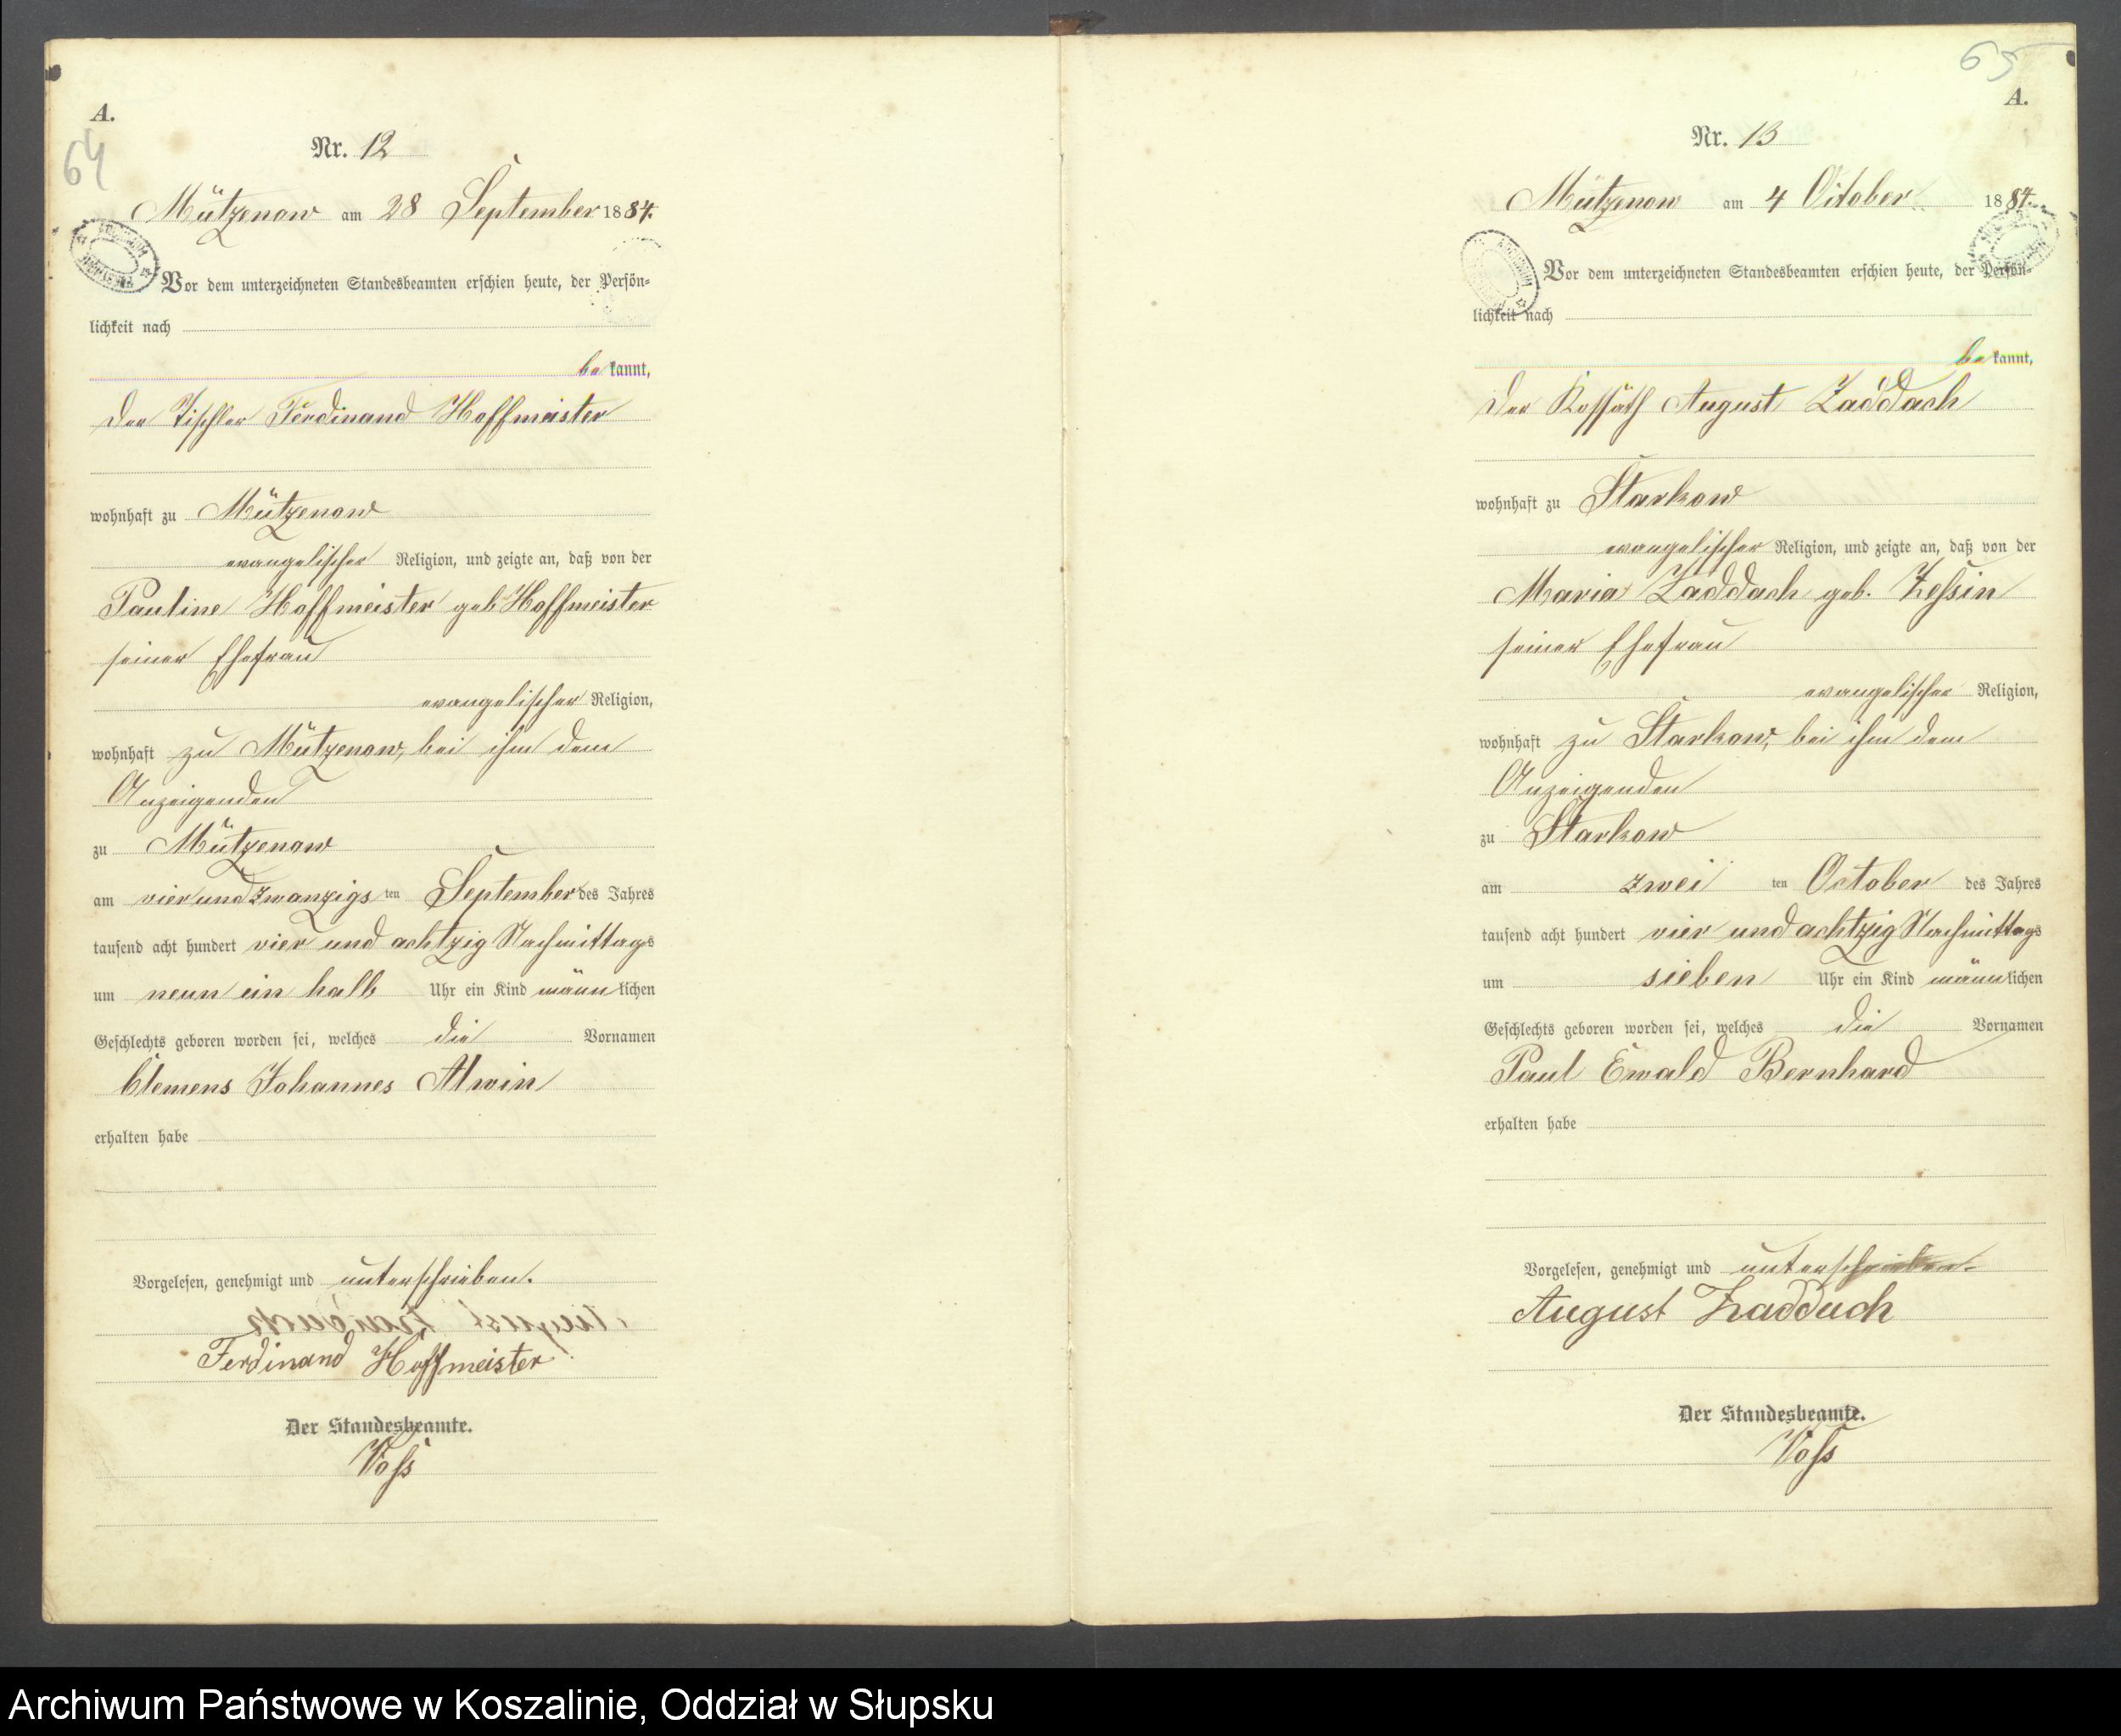 A.
64
Nr. 12
Mützenow am 28 September 1884.
Vor dem unterzeichneten Standesbeamten erschien heute, der Persön-
lichkeit nach
be kannt,
der Tischler Ferdinand Hoffmeister
wohnhaft zu Mützenow
evangelischer Religion, und zeigte an, daß von der
Pauline Hoffmeister geb Hoffmeister
seiner Ehefrau
evangelischer Religion,
wohnhaft zu Mützenow, bei ihm dem
Anzeigenden
zu Mützenow
am vier und zwanzigs ten September des Jahres
tausend acht hundert vier und achtzig Nachmittags
um neun ein halb Uhr ein Kind männ lichen
Geschlechts geboren worden sei, welches die Vornamen
Clemens Johannes Alwin
erhalten habe
Vorgelesen, genehmigt und unterschrieben.
Ferdinand Hoffmeister
Der Standesbeamte.
Voß
65
A.
Nr. 13
Mützenow am 4 October 1884.
Vor dem unterzeichneten Standesbeamten erschien heute, der Persön-
lichkeit nach
be kannt,
der Kossäth August Zaddach
wohnhaft zu Starkow
evangelischer Religion, und zeigte an, daß von der
Maria Zaddach geb. Zessin
seiner Ehefrau
evangelischer Religion,
wohnhaft zu Starkow, bei ihm dem
Anzeigenden
zu Starkow
am zwei ten October des Jahres
tausend acht hundert vier und achtzig Nachmittags
um sieben Uhr ein Kind männ lichen
Geschlechts geboren worden sei, welches die Vornamen
Paul Ewald Bernhard
erhalten habe
Vorgelesen, genehmigt und unterschrieben.
August Zadduch
Der Standesbeamte.
Voß
Archiwum Państwowe w Koszalinie, Oddział w Słupsku